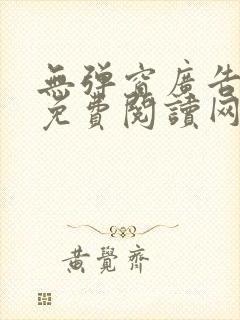 無彈窗廣告
免費閱讀网
黃覺齊